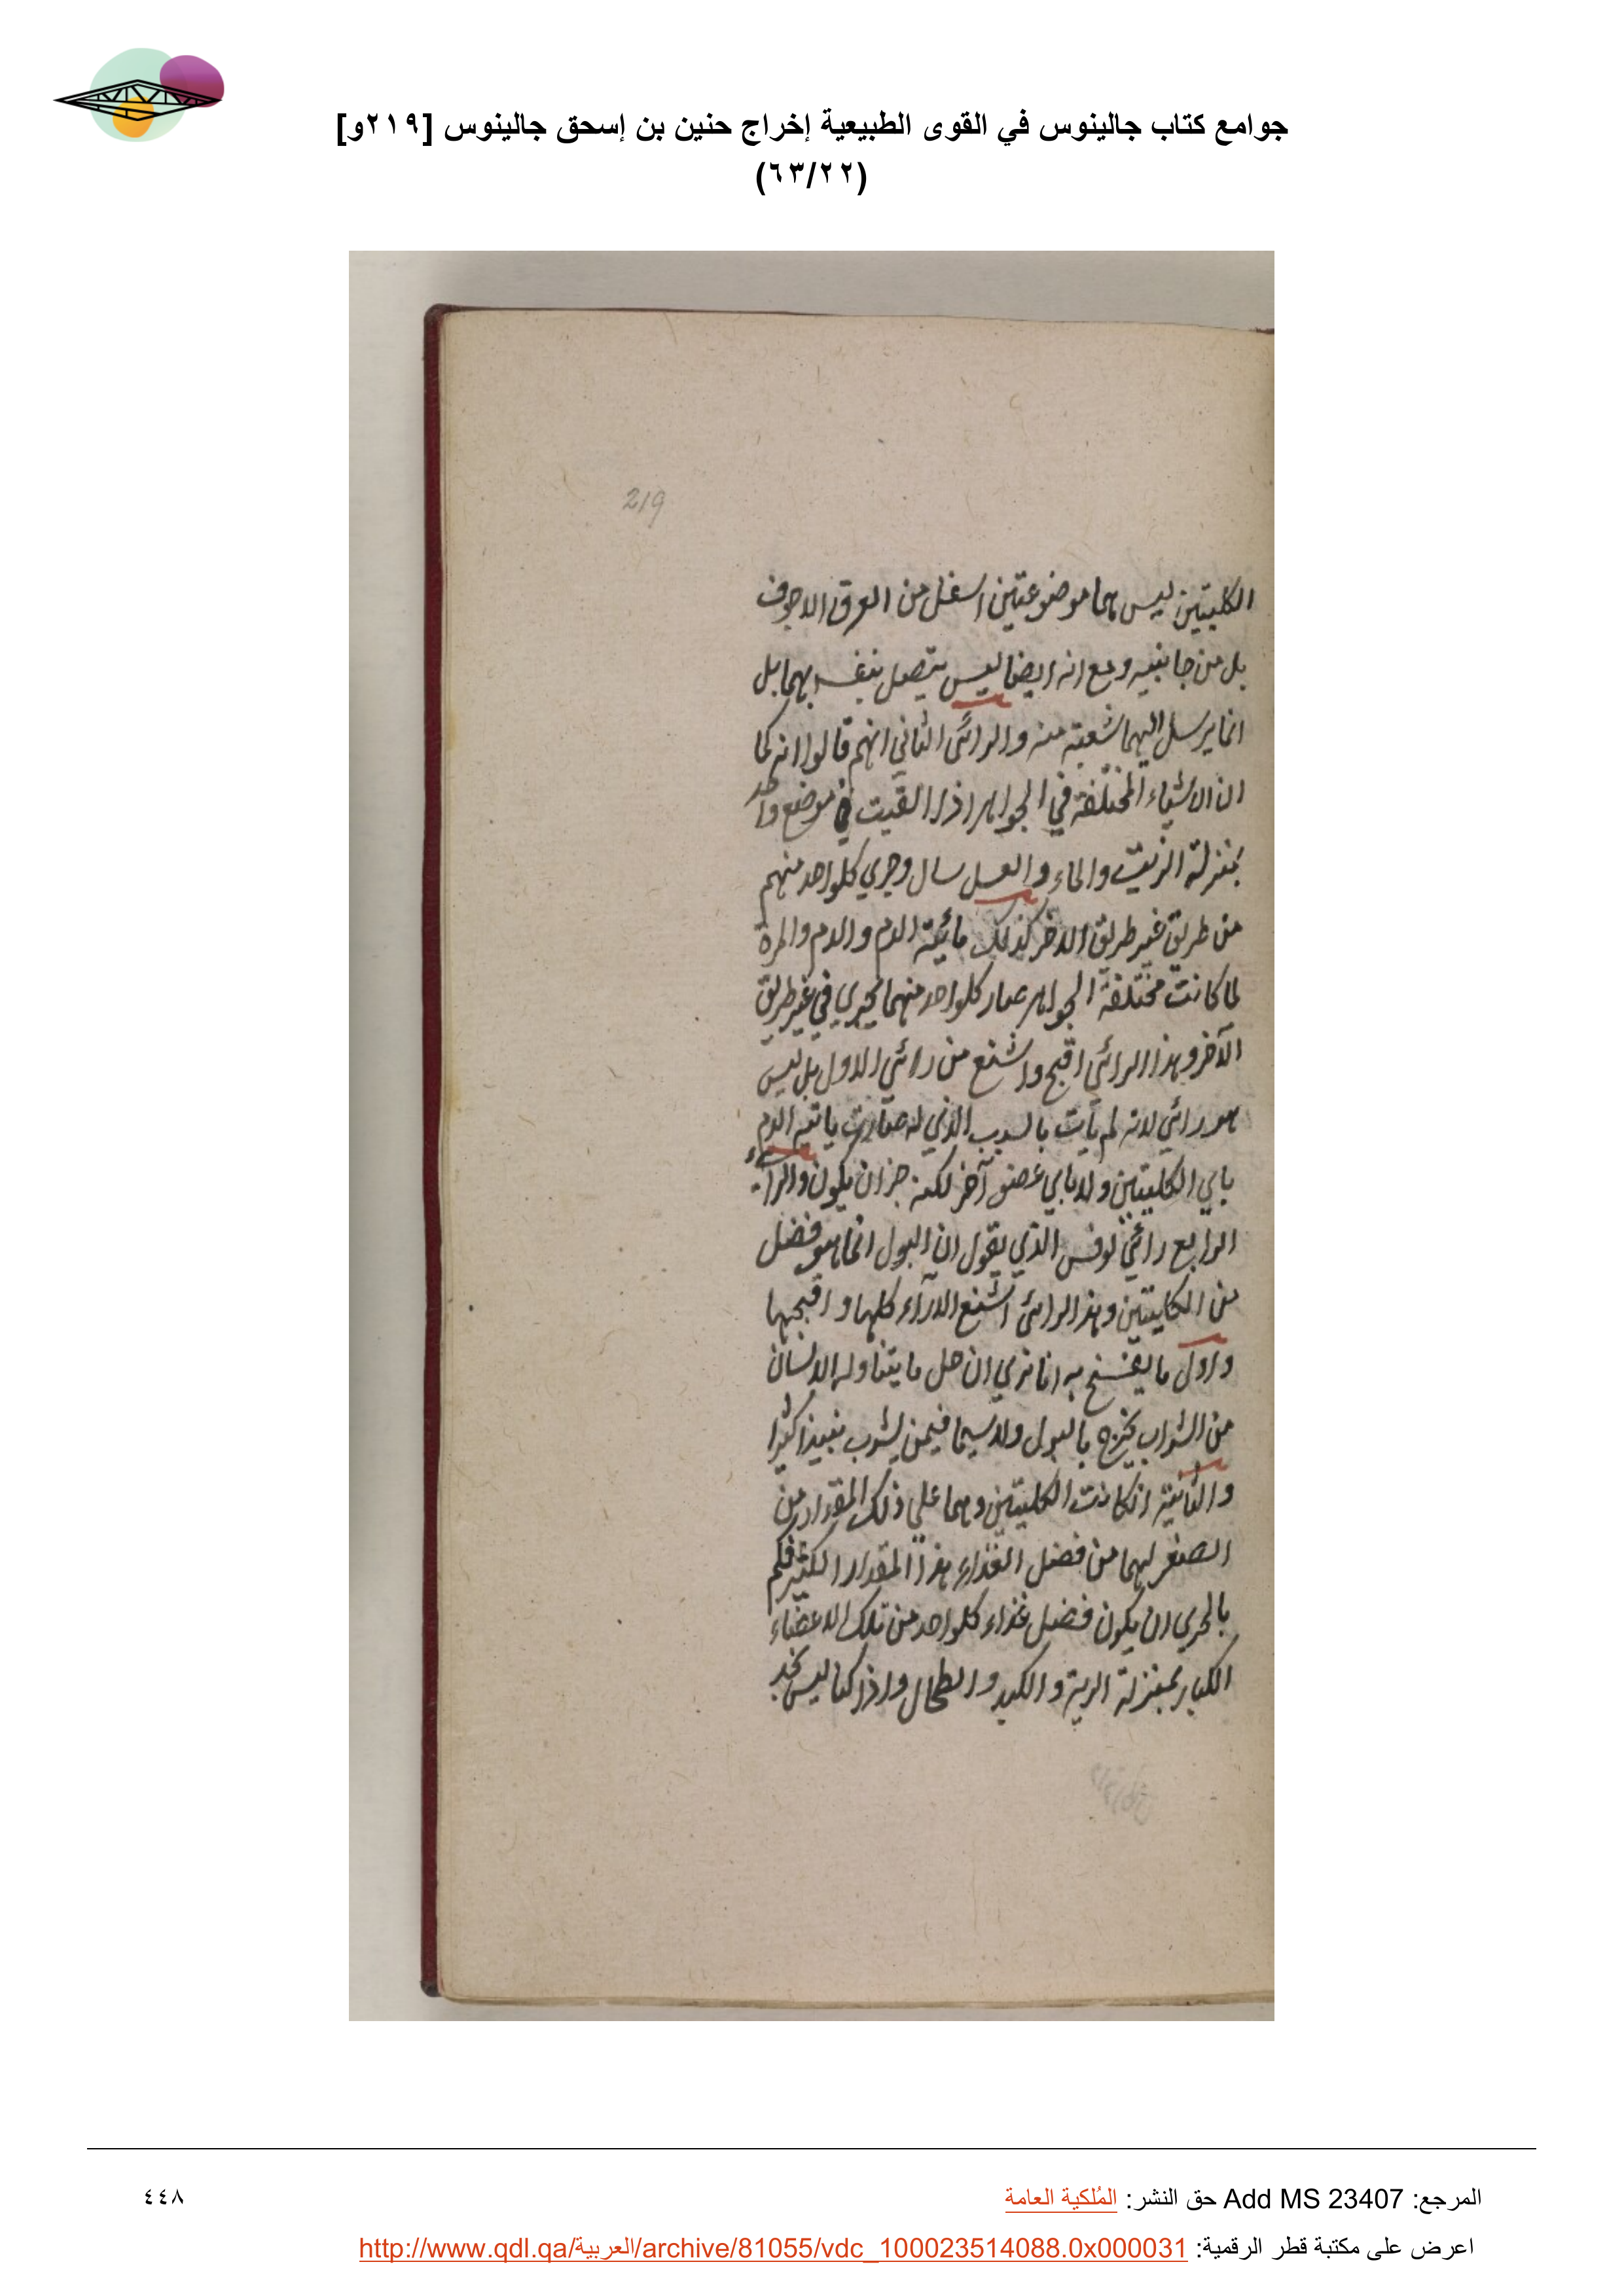 جوامع كتاب جالينوس في القوى الطبيعية إخراج حنين بن إسحق جالينوس [٢١٩و]
(٦٣/٢٢)
219
الكليتين ليس هما موضوعتين اسفل من العرق الاجوف
بل من جانبيه ومع انه ايضا ليس يتصل بنفسه بهما بل
انما يرسل اليهما شعبته منه والرائى الثاني انهم قالوا انه كما
ان الاشياء المختلفة في الجواهر اذا القيت في موضع واحد
بمنزلة الزيت والماء والعسل سال وجري كلواحد منهم
من طريق غير طريق الاخر كذلك مائية الدم والدم والمرة
لما كانت مختلفة الجواهر صار كلواحد منهما يجري في غير طريق
الآخر وهذا الرائي اقبح واشنع من رائي الاول بل ليس
هو رائي لانه لم يأت بالسبب الذي له صارت ياتيه الدم
باي الكليتين ولا ياي عضو آخر لكنه جزان يكون والراي
الرابع رائي لوفس الذي يقول ان البول انما هو فضل
من الكليتين وهذا الرائى اشنع الاراء كلها واقبحها
واول ما يفسخ به انا نري ان جل ما يتناوله الانسان
من الشراب يخرج بالبول ولاسيما فيمن يشرب نبيذا كثيرا
والثانية ان كانت الكليتين وهما علي ذلك المقدار من
الصغر لهما من فضل الغذاء هذا المقدار الكثير فكم
بالحرى ان يكون فضل غذاء كلواحد من تلك الاعضاء
الكبار بمنزلة الرية والكبد والطحال واذا كنا ليس نجد
المرجع: Add MS 23407 حق النشر: المُلكية العامة
٤٤٨
اعرض على مكتبة قطر الرقمية: http://www.qdl.qa/العربية/archive/81055/vdc_100023514088.0x000031